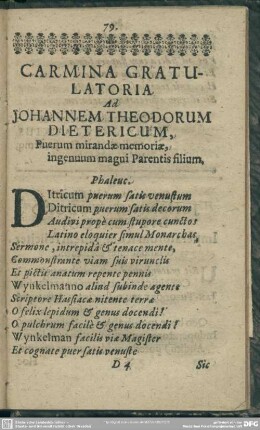 79.
CARMINA GRATU-
LATORIA
Ad
JOHANNEM THEODORUM
DIETERICUM,
Puerum mirandæ memoriæ,
ingenuum magni Parentis filium,
Phaleuc.
Ditricum puerum satis venustum
Ditricum puerum satis decorum
Audivi propè cum stupore cunctos
Latino eloquier simul Monarchas,
Sermone, intrepidâ & tenace mente,
Commonstrante viam suis virunclis
Et pictis anatum repente pennis
Wynkelmanno aliud subinde agente
Scriptore Hassiacæ nitente terræ
O felix lepidum & genus docendi!
O pulchrum facilè & genus docendi!
Wynkelman facilis viæ Magister
Et cognate puer satis venuste
D 4. Sic